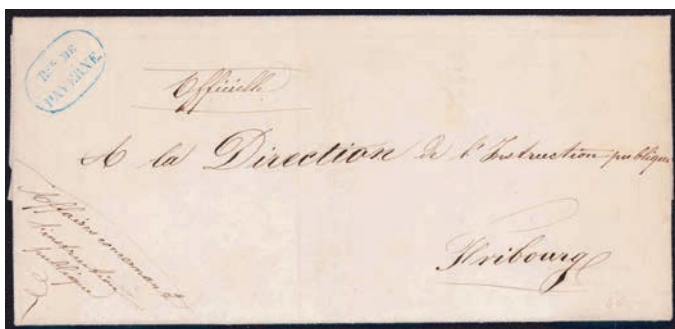 Bau DE
PAYERNE
Officielle
A la Direction de l'Instruction publique
Affaires concernant
l'instruction
publique
Fribourg